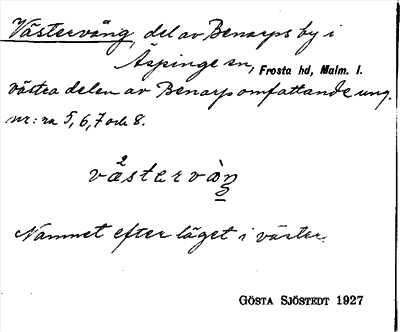 Västervång, del av Benarps by i
Äspinge sn, Frosta hd, Malm. l.
västra delen av Benarp omfattande ung.
nr: ra 5, 6, 7 och 8.
Namnet efter läget i väster.
GÖSTA SJÖSTEDT 1927